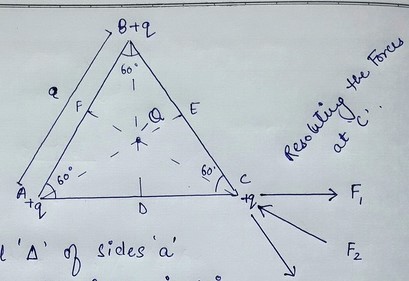 B+q
60°
a
F
Q
E
Resolving the Forces
at 'C'.
A
+q
60°
60°
C
+q
F₁
D
F₂
'Δ' of sides 'a'